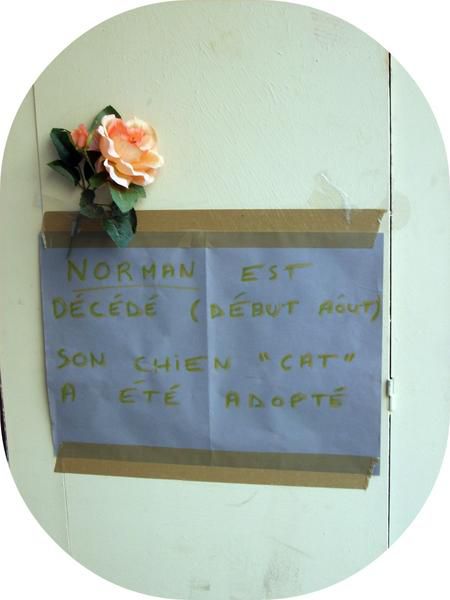 NORMAN EST
DÉCÉDÉ (DÉBUT AÓUT)
SON CHIEN "CAT"
A ÉTÉ ADOPTÉ